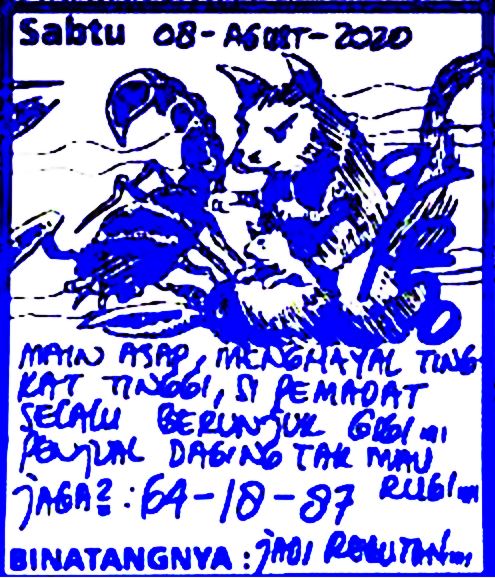 Sabtu 08-AGUST-2020
MAIN ASAP, MENGHAYAL TING
KAT TINGGI, SI PEMADAT
SELALU BERUNJUK GIGI...
PENJUAL DAGING TAK MAU
RUGI...
JAGA2 : 64-18-87
BINATANGNYA : JADI REBUTAN...